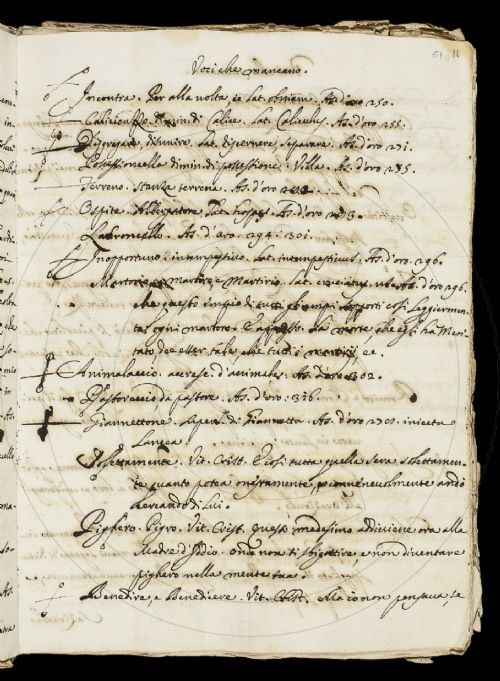 61
Voci che mancano.
Incontra. Per alla volta, Lat. obviam. As. d'oro 250.
Calicciuolo. Dimin. di Calice. Lat. Caliculus. As. d'oro 255.
Disgregare, Lat. discernere, separare. As. d'oro 271.
Possessioncella dimin. di possessione. Villa. As. d'oro 285.
Terreno. Stanza terrena. As. d'oro
Ospite. Albergatore. Lat. hospes. As. d'oro
Ladroncello. As. d'oro. 294. 301.
Inopportuno. intempestivo. Lat. intempestivus. As. d'oro. 296.
Martoro, martire, Martirio. Lat. cruciatus. As. d'oro 296.
che questo empio di tutti gli empi, così leggiermen-
te, ogni martoro. La morte, che egli ha meri-
tato dee esser tale che tutti i ec.
Animalaccio. accresc. d'animale. As. d'oro 302.
Pastoraccio da pastore. As. d'oro. 316.
Giannettone. Giannetta. As. d'oro iniecta
Lancea
Soffettamente. Vit. Crist. E così tutta quella sera
te quanto potea onestamente, e convenevolmente andò
cercando di lui.
Pighero. Pigro. Vit. Crist. Questo medesimo adiviene ora alla
Madre d'Iddio. onde non ti sbigottire, e non diventare
pighero nella mente tua.
Benedire, e Benedicere. Vit. Crist. Ma io non pensava, se